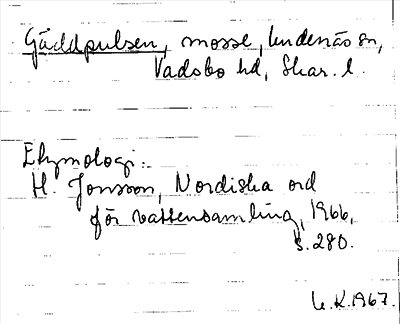 Gäddpulsen, mosse, Undenäs sn,
Vadsbo hd, Skar. l.
Etymologi:
H. Jonsson, Nordiska ord
för vattensamling, 1966,
s. 280.
U.K. 1967.